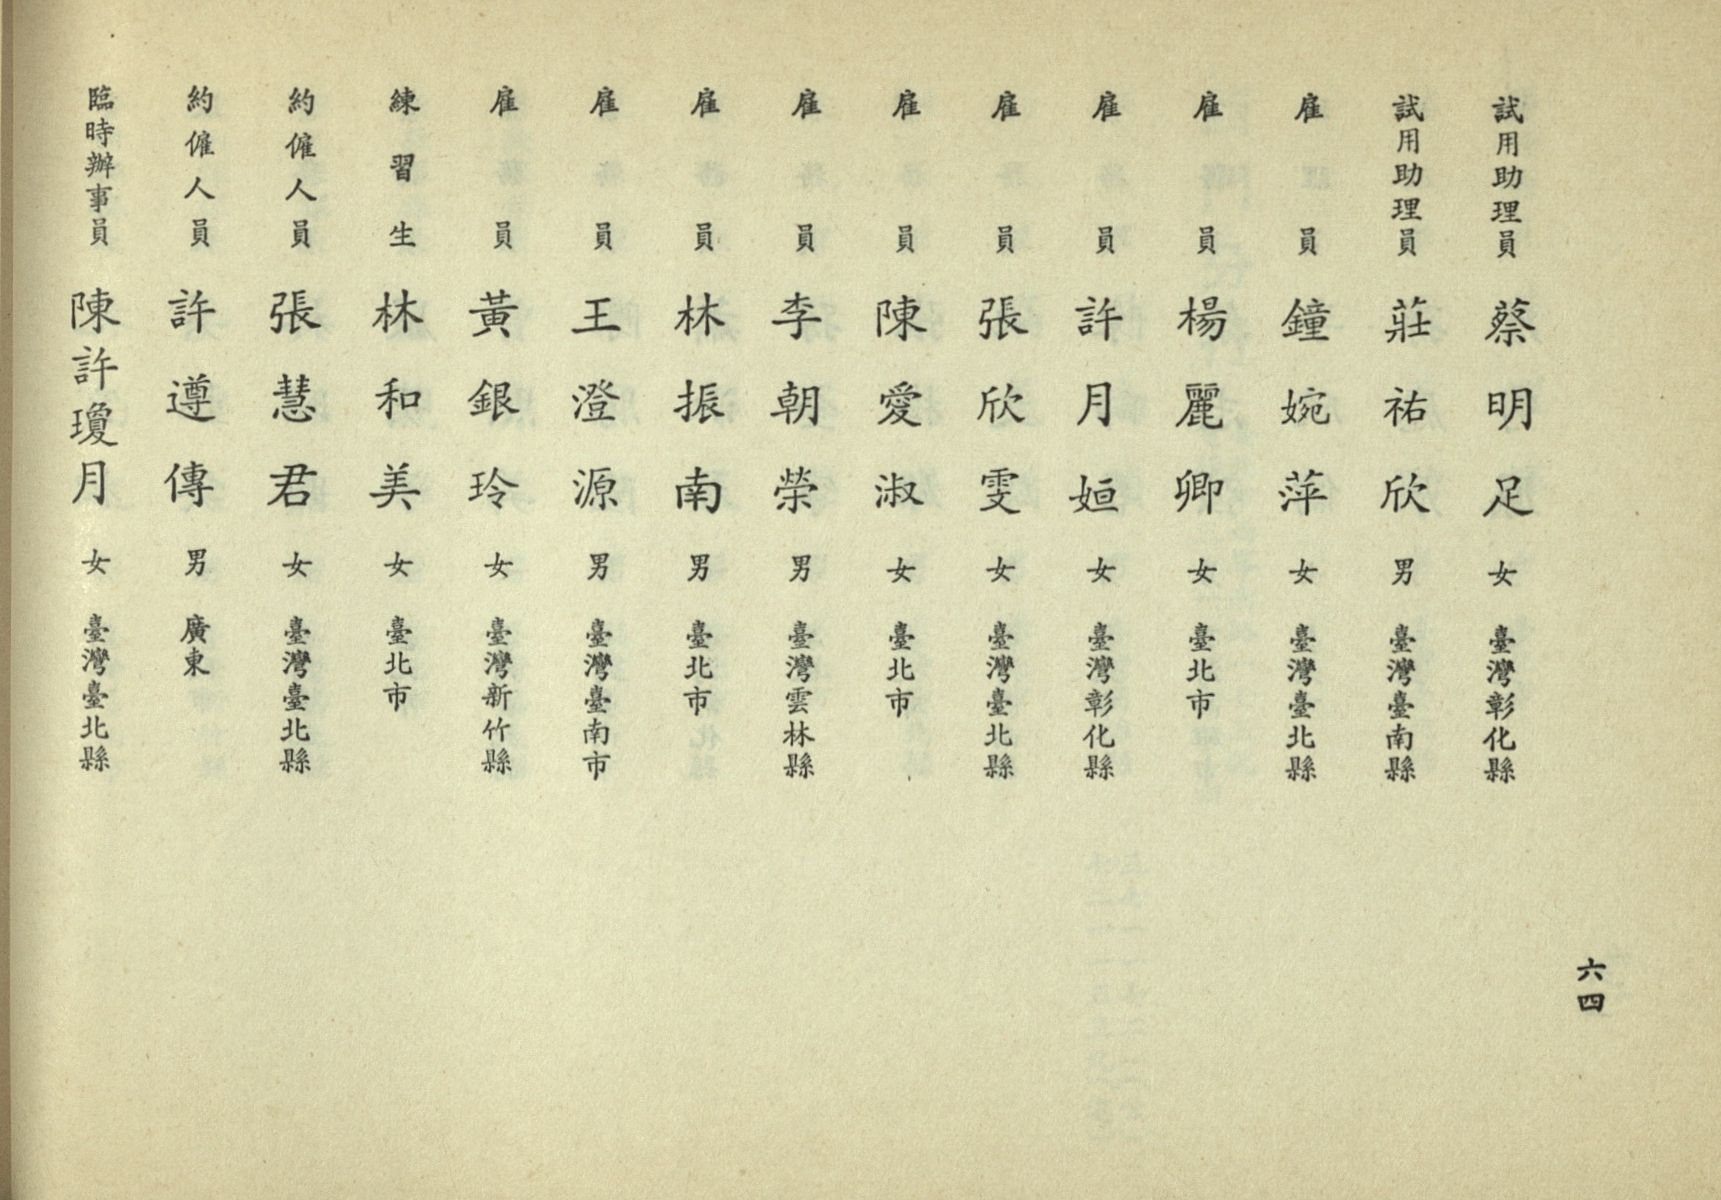 試用助理員 蔡明足 女 臺灣彰化縣
試用助理員 莊祐欣 男 臺灣臺南縣
雇員 鐘婉萍 女 臺灣臺北縣
雇員 楊麗卿 女 臺北市
雇員 許月姮 女 臺灣彰化縣
雇員 張欣雯 女 臺灣臺北縣
雇員 陳愛淑 女 臺北市
雇員 李朝榮 男 臺灣雲林縣
雇員 林振南 男 臺北市
雇員 王澄源 男 臺灣臺南市
雇員 黃銀玲 女 臺灣新竹縣
練習生 林和美 女 臺北市
約僱人員 張慧君 女 臺灣臺北縣
約僱人員 許遵傳 男 廣東
臨時辦事員 陳許瓊月 女 臺灣臺北縣
六四